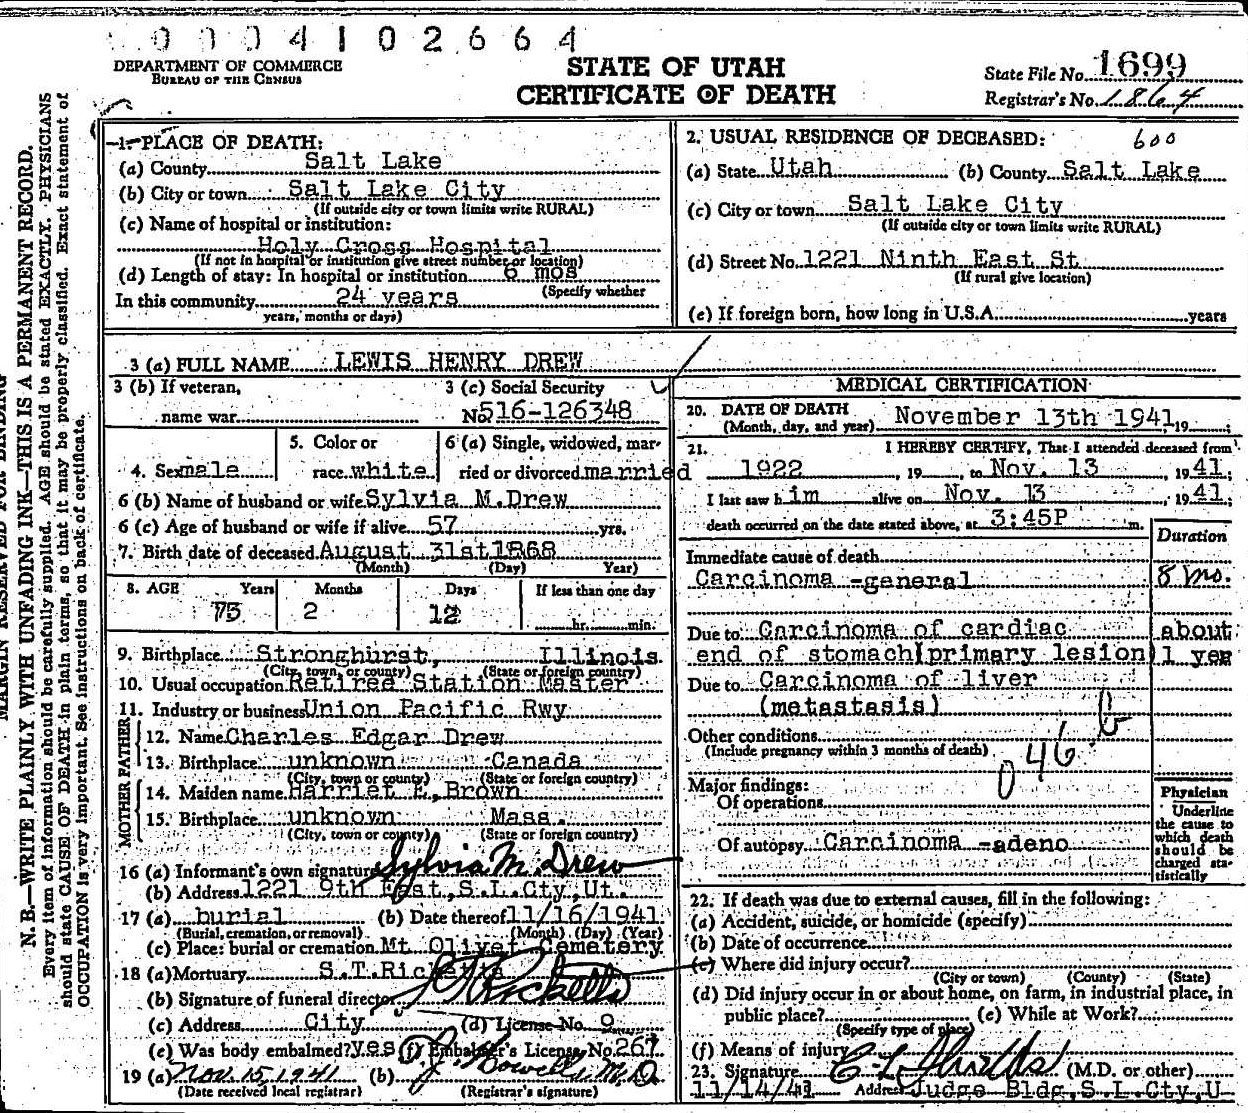 0004102664
DEPARTMENT OF COMMERCE
BUREAU OF THE CENSUS
STATE OF UTAH
CERTIFICATE OF DEATH
State File No. 1699
Registrar's No. 1864
MARGIN RESERVED FOR BINDING
N. B.—WRITE PLAINLY WITH UNFADING INK—THIS IS A PERMANENT RECORD.
Every item of information should be carefully supplied. AGE should be stated EXACTLY. PHYSICIANS
should state CAUSE OF DEATH in plain terms, so that it may be properly classified. Exact statement of
OCCUPATION is very important. See instructions on back of certificate.
1. PLACE OF DEATH:
(a) County Salt Lake
(b) City or town Salt Lake City
(If outside city or town limits write RURAL)
(c) Name of hospital or institution:
Holy Cross Hospital
(If not in hospital or institution give street number or location)
(d) Length of stay: In hospital or institution 6 mos
(Specify whether
In this community 24 years
years, months or days)
2. USUAL RESIDENCE OF DECEASED: 600
(a) State Utah (b) County Salt Lake
(c) City or town Salt Lake City
(If outside city or town limits write RURAL)
(d) Street No. 1221 Ninth East St
(If rural give location)
(e) If foreign born, how long in U.S.A. years
3 (a) FULL NAME LEWIS HENRY DREW
3 (b) If veteran,
name war
3 (c) Social Security
No. 516-126348
4. Sex male
5. Color or
race white
6 (a) Single, widowed, mar-
ried or divorced married
6 (b) Name of husband or wife Sylvia M. Drew
6 (c) Age of husband or wife if alive 57 yrs.
7. Birth date of deceased August 31st 1868
(Month) (Day) Year)
8. AGE Years Months Days If less than one day
73 2 12 hr. min.
9. Birthplace Stronghurst, Illinois
(City, town, or county) (State or foreign country)
10. Usual occupation Retired Station Master
11. Industry or business Union Pacific Rwy
FATHER
12. Name Charles Edgar Drew
13. Birthplace unknown Canada
(City, town or county) (State or foreign country)
MOTHER
14. Maiden name Harriet E. Brown
15. Birthplace unknown Mass.
(City, town or county) (State or foreign country)
16 (a) Informant's own signature Sylvia M. Drew
(b) Address 1221 9th East, S.L.Cty, Ut.
17 (a) burial (b) Date thereof 11/16/1941
(Burial, cremation, or removal) (Month) (Day) (Year)
(c) Place: burial or cremation Mt Olivet Cemetery
18 (a) Mortuary S.T.Ricketts
(b) Signature of funeral director Ricketts
(c) Address City (d) License No. 9
(e) Was body embalmed? yes (f) Embalmer's License No. 267
19 (a) Nov. 15, 1941 (b) M.D.
(Date received local registrar) (Registrar's signature)
MEDICAL CERTIFICATION
20. DATE OF DEATH
(Month, day, and year) November 13th 1941 19 ;
21. I HEREBY CERTIFY, That I attended deceased from
1922 19 to Nov. 13 , 19 41;
I last saw h im alive on Nov. 13 , 19 41;
death occurred on the date stated above, at 3:45P m.
Duration
Immediate cause of death
Carcinoma -general 8 mo.
Due to Carcinoma of cardiac about
end of stomach(primary lesion) 1 yea
Due to Carcinoma of liver
(metastasis)
Other conditions
(Include pregnancy within 3 months of death)
046 b
Major findings:
Of operations
Of autopsy Carcinoma -adeno
Physician
Underline
the cause to
which death
should be
charged sta-
tistically
22. If death was due to external causes, fill in the following:
(a) Accident, suicide, or homicide (specify)
(b) Date of occurrence
(c) Where did injury occur?
(City or town) (County) (State)
(d) Did injury occur in or about home, on farm, in industrial place, in
public place? (e) While at Work?
(Specify type of place)
(f) Means of injury
23. Signature C L Shields (M.D. or other)
11/14/41 Address Judge Bldg, S.L.Cty, U